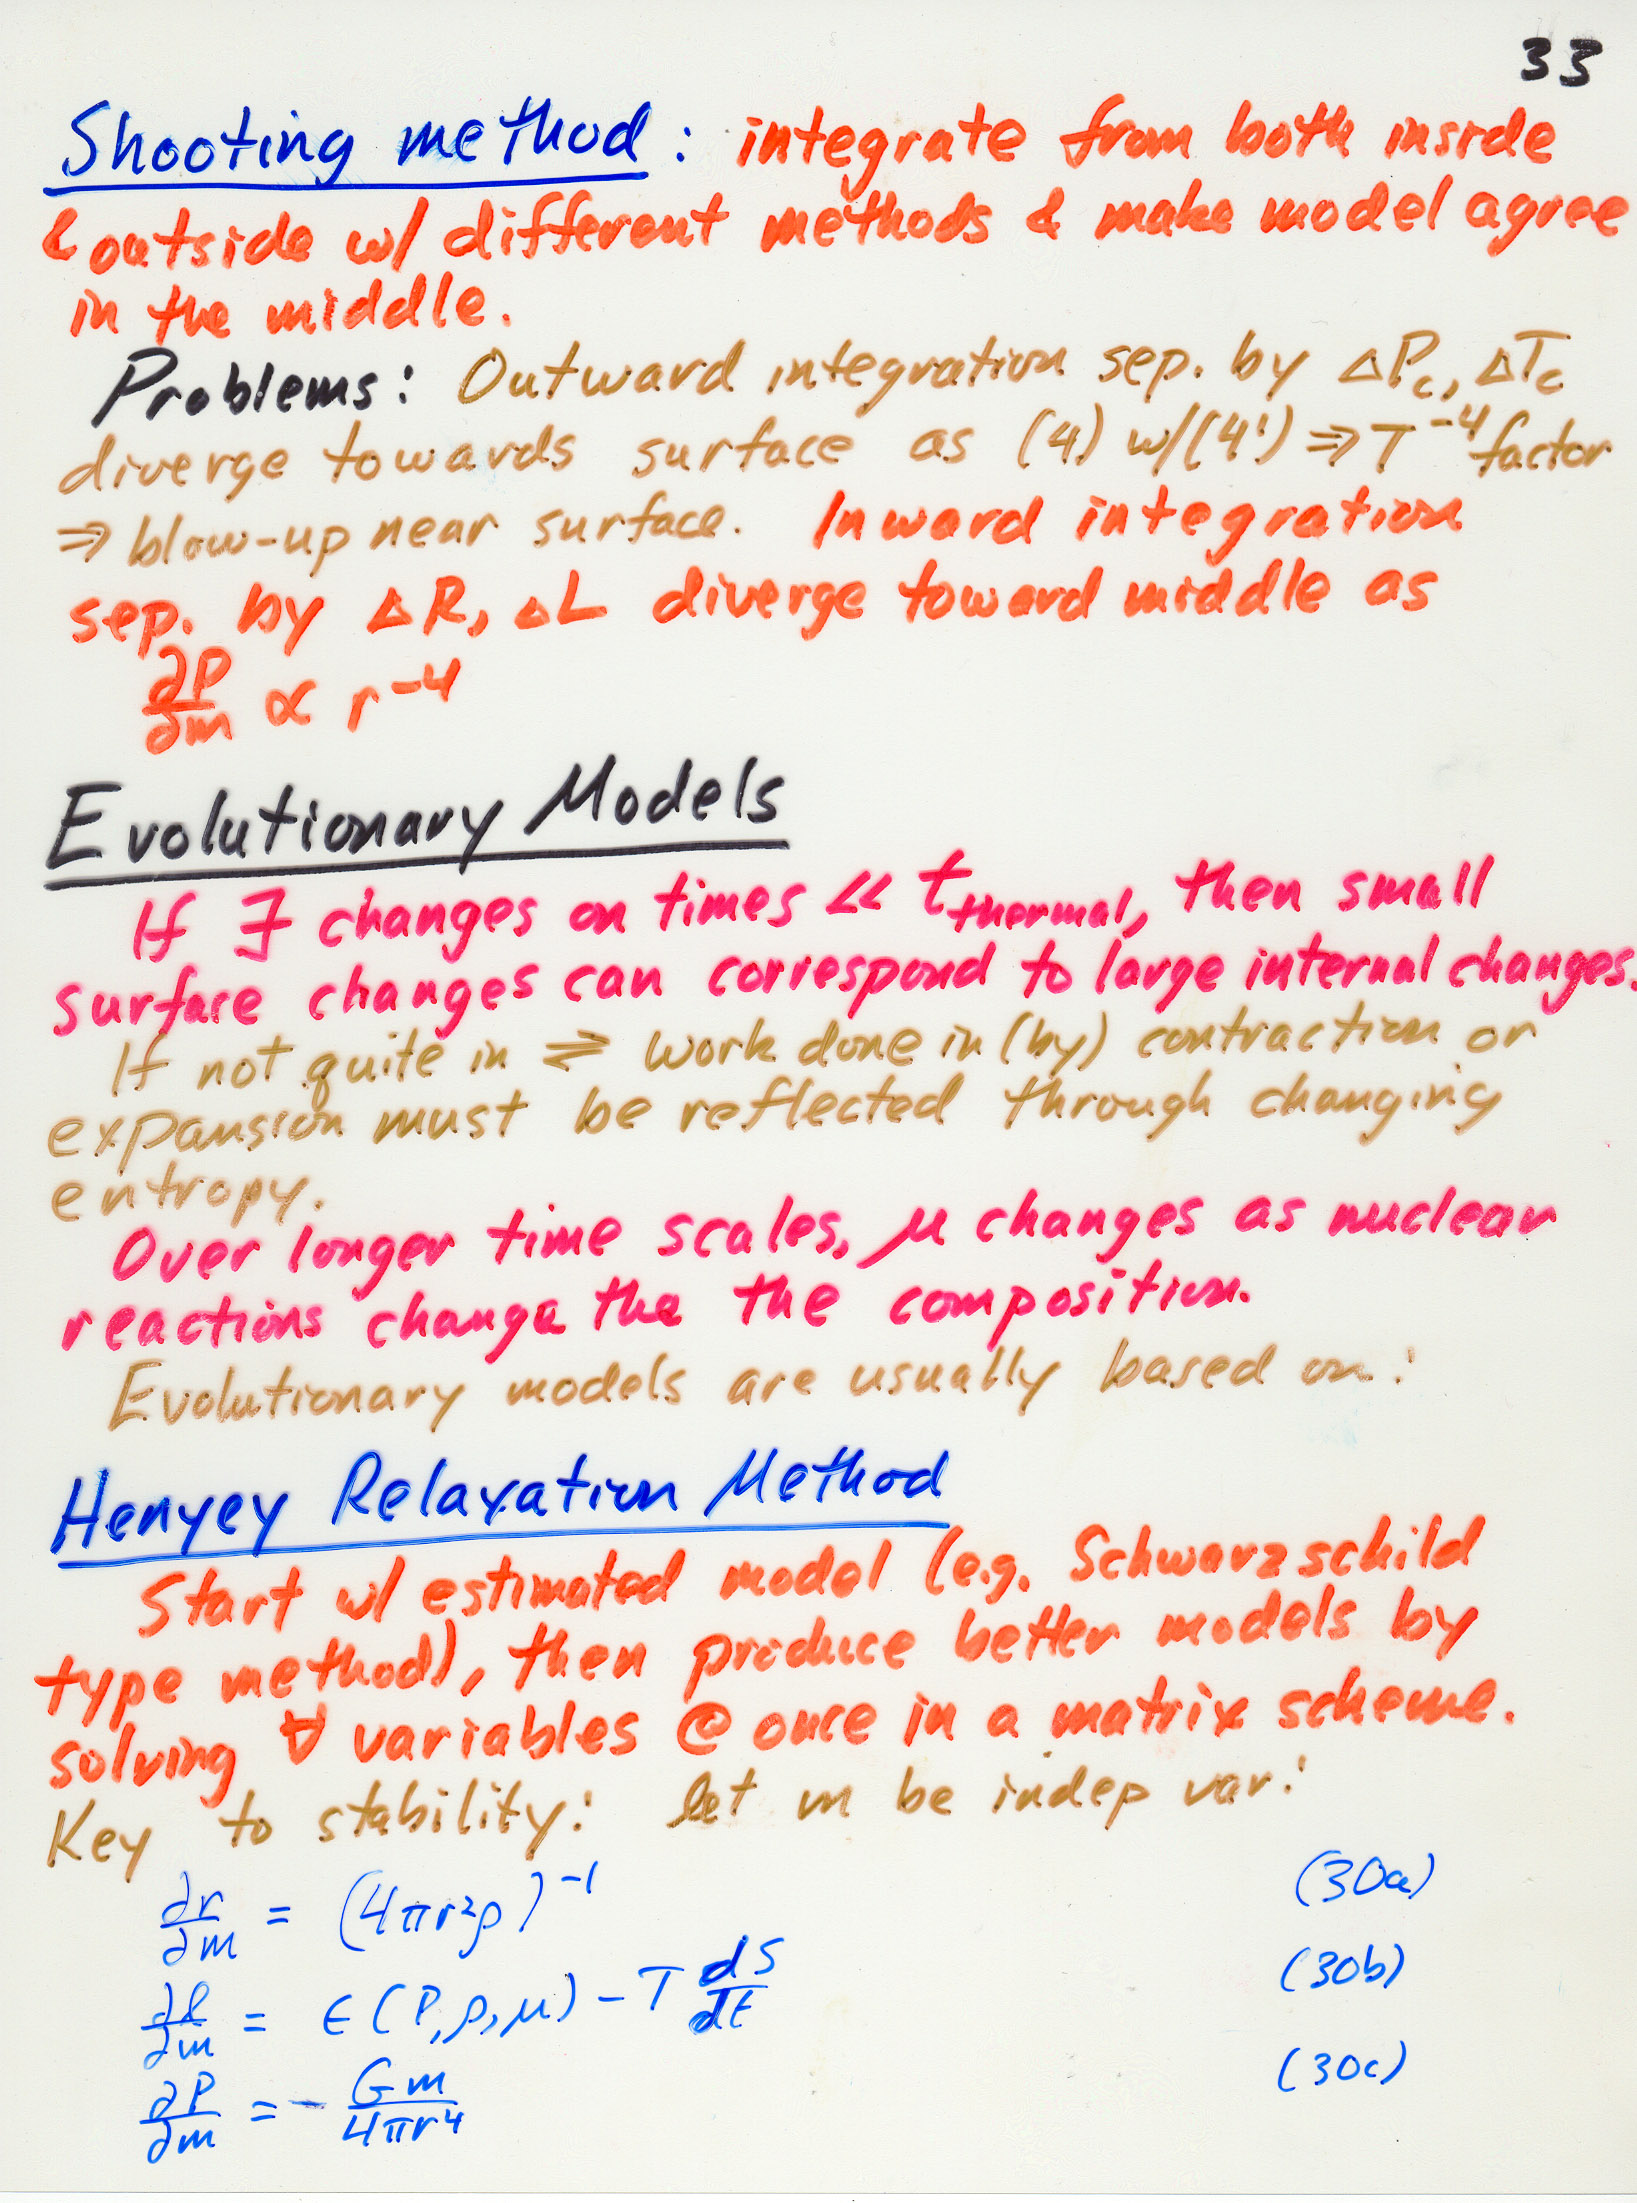 33
Shooting method: integrate from both inside
& outside w/ different methods & make model agree
in the middle.
Problems: Outward integration sep. by ΔP_c, ΔT_c
diverge towards surface as (4) w/(4') ⇒ T^-4 factor
⇒ blow-up near surface. Inward integration
sep. by ΔR, ΔL diverge toward middle as
∂P/∂m ∝ r^-4
Evolutionary Models
If ∃ changes on times << t_thermal, then small
surface changes can correspond to large internal changes.
If not quite in ⇌ work done in (by) contraction or
expansion must be reflected through changing
entropy.
Over longer time scales, μ changes as nuclear
reactions change the the composition.
Evolutionary models are usually based on:
Henyey Relaxation Method
Start w/ estimated model (e.g. Schwarzschild
type method), then produce better models by
solving ∀ variables @ once in a matrix scheme.
Key to stability: let m be indep var:
∂r/∂m = (4πr²ρ)^-1 (30a)
∂l/∂m = ε(P,ρ,μ) - T dS/dt (30b)
∂P/∂m = - Gm/4πr⁴ (30c)